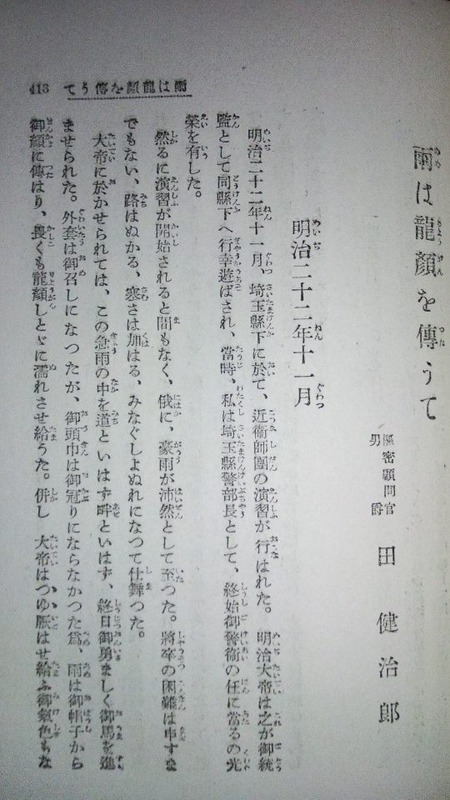 雨は龍顏を傳うて
樞密顧問官
男爵
田健治郎
明治二十二年十一月
明治二十二年十一月、埼玉縣下に於て、近衞師團の演習が行はれた。明治大帝は之が御統
監として同縣下へ行幸遊ばされ、當時、私は埼玉縣警部長として、終始御警衞の任に當るの光
榮を有した。
然るに演習が開始されると間もなく、俄に、豪雨が沛然として至つた。將卒の困難は申すま
でもない、路はぬかる、寒さは加はる、みなぐしよぬれになつて仕舞つた。
大帝に於かせられては、この急雨の中を道といはず畔といはず、終日御勇ましく御馬を進
ませられた。外套は御召しになつたが、御頭巾は御冠りにならなかつた爲、雨は御帽子から
御顏に傳はり、畏くも龍顏しとゞに濡れさせ給うた。併し 大帝はつゆ厭はせ給ふ御氣色もな
雨は龍顏を傳うて
413